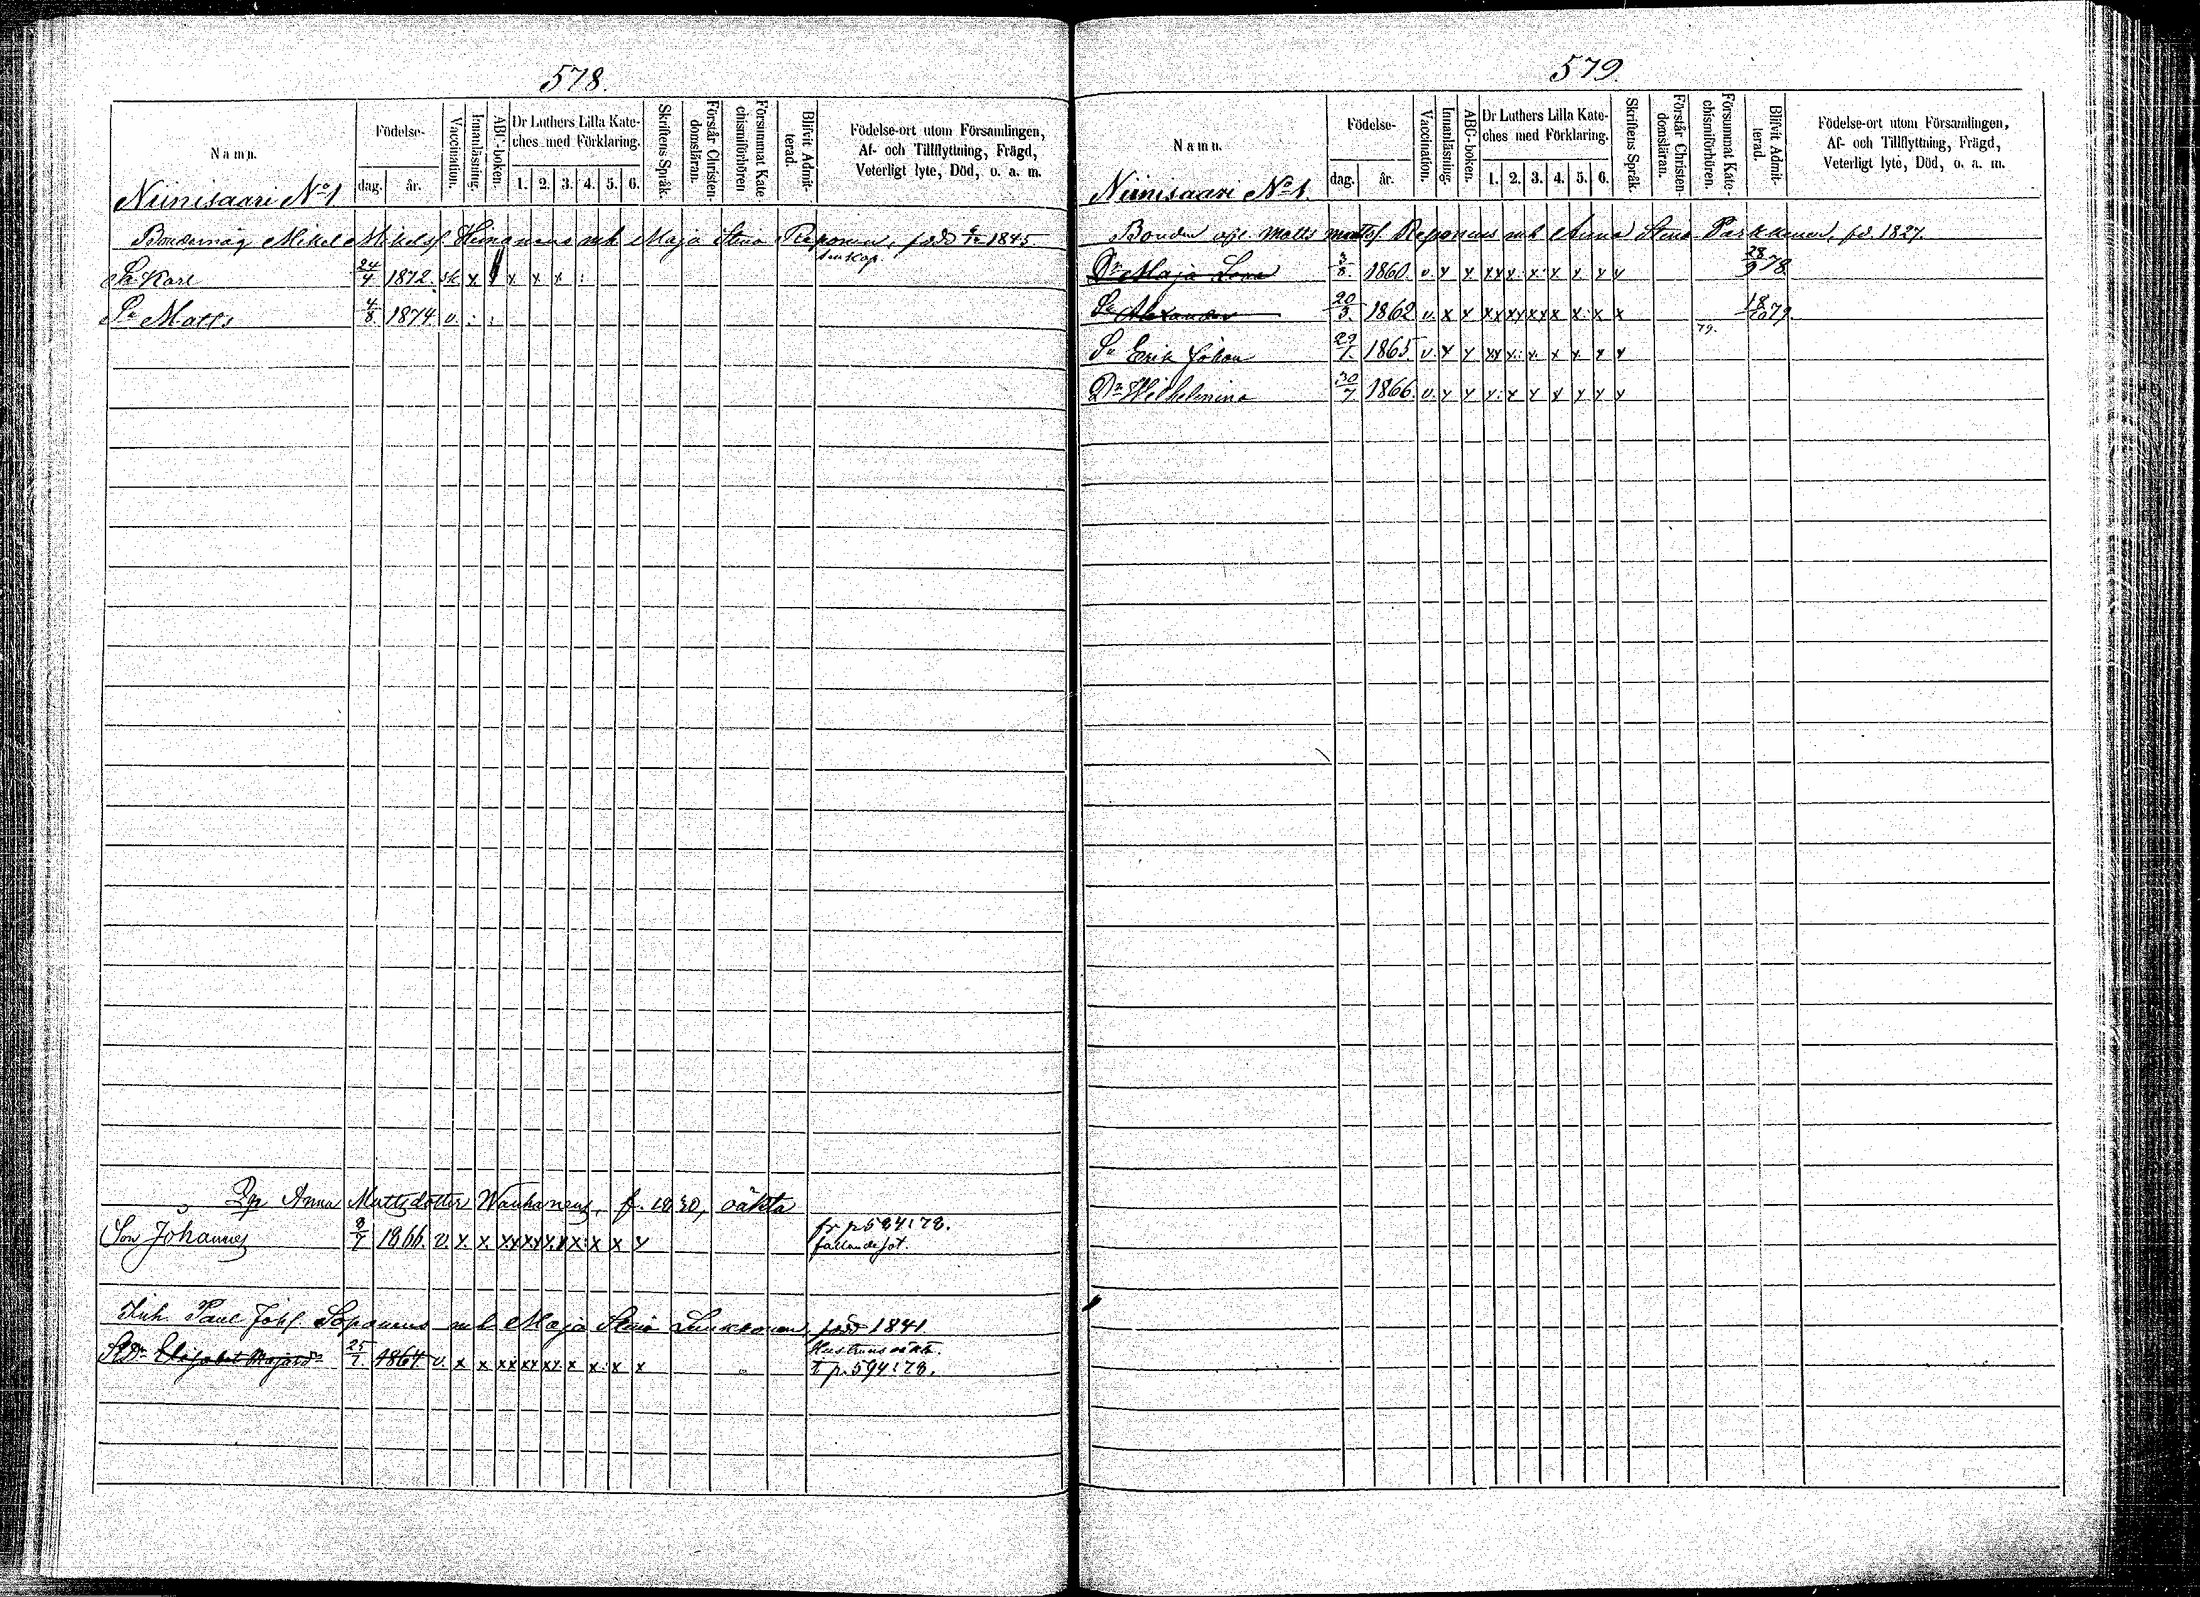 578.
Namn.
Födelse-
dag.
år.
Vaccination.
Innanläsning.
ABC-boken.
Dr Luthers Lilla Kate-
ches med Förklaring.
1. 2. 3. 4. 5. 6.
Skriftens Språk.
Förstår Christen-
domsläran.
Försummat Kate-
chismiförhören
Blifvit Admit-
terad.
Födelse-ort utom Församlingen,
Af- och Tillflyttning, Frägd,
Veterligt lyte, Död, o. a. m.
Niinisaari No 1
Bondemåg Mikel Mikelsf. Himanens m h Maja Stina Reponen, född 1845.
Sn Karl 24/4 1872. sk. x x x x x :
Sn Matts 4/8 1874 v. : :
Anna Mattsdotter Wauhanens, f. 1830, oäkta
Son Johannes 9/7 1866. v. x. x. xx xx x. x x: x x x fr p 584: 78.
fallandesot.
Inh. Paul Johsf. Soponens m h Maja Stina Lukkonen född 1841
Elisabet Majasdr 25/1 1864 v. x x xx xx xx. x x. x x Hustruns oäkta.
t p. 594: 78.
579.
Namn.
Födelse-
dag.
år.
Vaccination.
Innanläsning.
ABC-boken.
Dr Luthers Lilla Kate-
ches med Förklaring.
1. 2. 3. 4. 5. 6.
Skriftens Språk.
Förstår Christen-
domsläran.
Försummat Kate-
chismiförhören.
Blifvit Admit-
terad.
Födelse-ort utom Församlingen,
Af- och Tillflyttning, Frägd,
Veterligt lyte, Död, o. a. m.
Niinisaari No 1.
Bonden afl. Matts Mattsf. Reponens m h Anna Stina Parkkonen, fd. 1827.
Dr Maja Lena 3/8. 1860. v. x x xx x: x: x x x x 28/9 78.
Sn Alexander 20/3 1862 v. x x xx xx xx x x: x x 18/10 79.
Sn Erik Johan 29/1. 1865 v. x x xx x: x. x x. x x 79.
Dr Wilhelmina 30/7 1866. v. x x x: x x x x x x